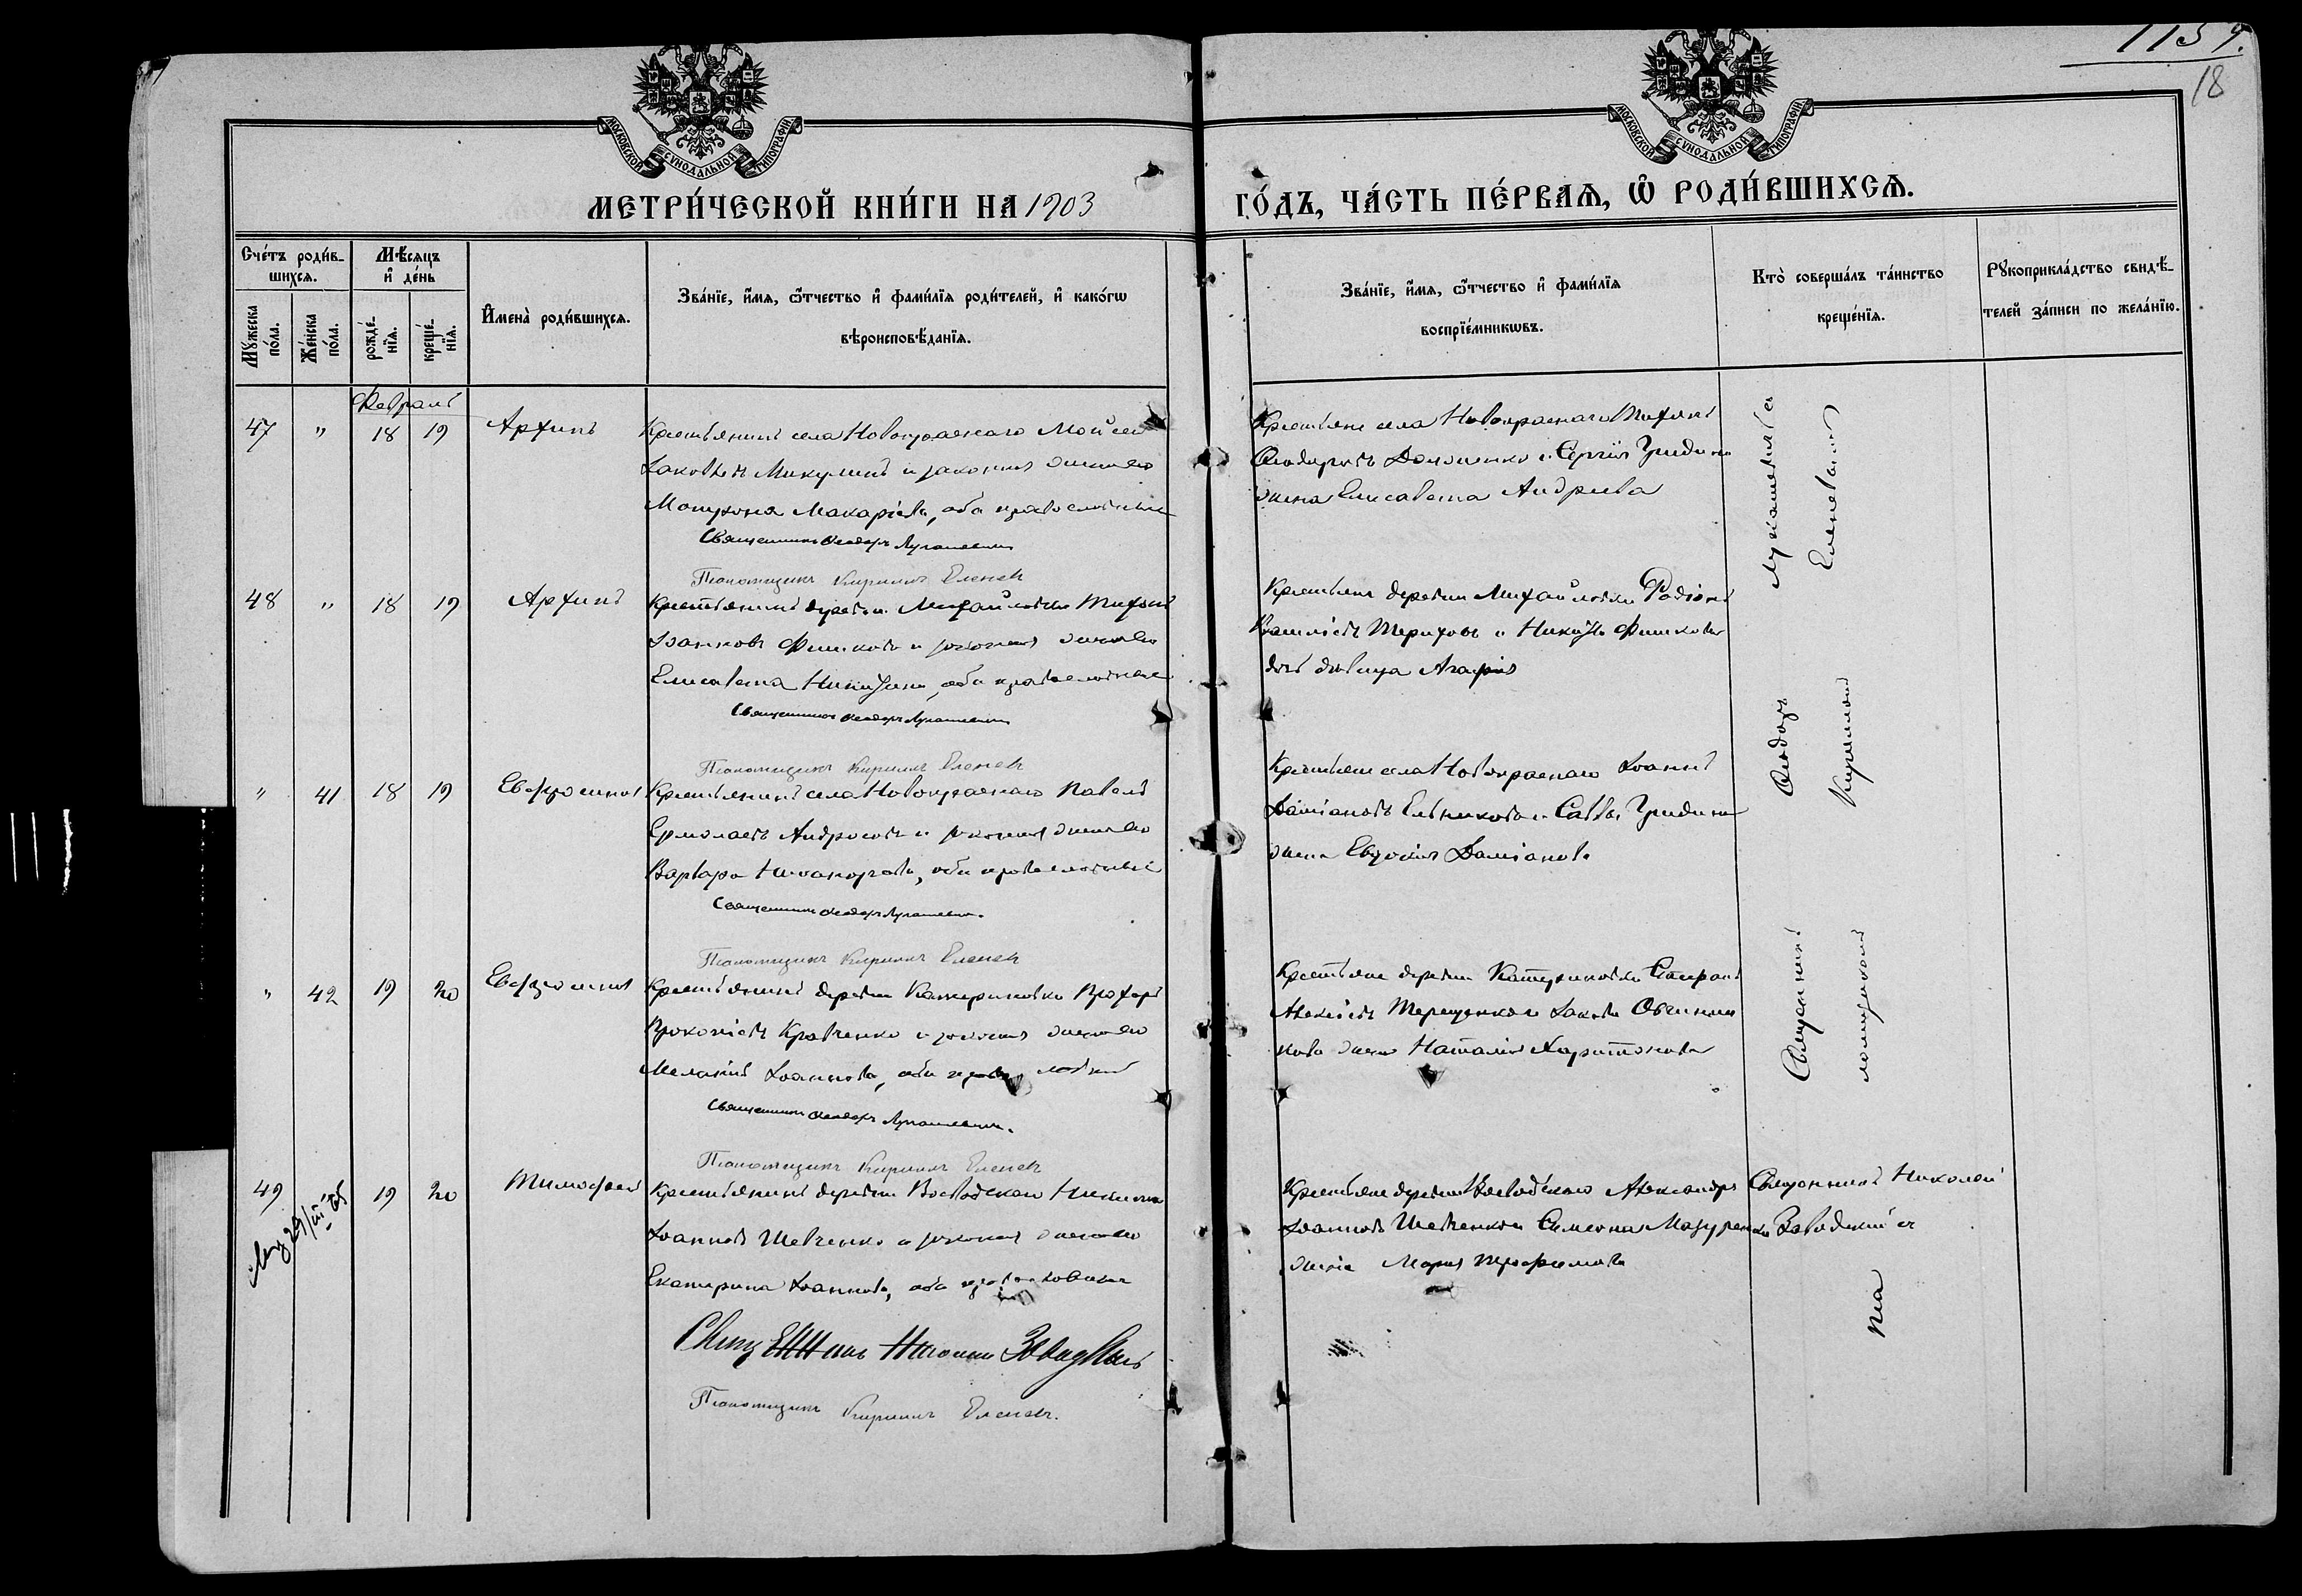 1159.
18
МОСКОВСКОЙ СУНОДАЛЬНОЙ ТИПОГРАФІИ
МОСКОВСКОЙ СУНОДАЛЬНОЙ ТИПОГРАФІИ
МЕТРИ́ЧЕСКОЙ КНИ́ГИ НА 1903
ГО́ДЪ, ЧА́СТЬ ПЕ́РВАѦ, Ѡ҆ РОДИ́ВШИХСѦ.
Сче́тъ роди́в-
шихсѧ.
Мꙋжеска по́ла.
Же́нска по́ла.
Мѣ́сѧцъ
и҆ де́нь
рожде́-
нїѧ.
креще́-
нїѧ.
И҆мена̀ роди́вшихсѧ.
Зва́нїе, и҆́мѧ, ѻ҆́тчество и҆ фами́лїѧ роди́телей, и҆ како́гѡ
вѣроисповѣ́данїѧ.
Зва́нїе, и҆́мѧ, ѻ҆́тчество и҆ фами́лїѧ
воспрїе́мникѡвъ.
Кто̀ соверша́лъ та́инство
креще́нїѧ.
Рꙋкоприкла́дство свидѣ́-
телей за́писи по жела́нїю.
Февраль
47 " 18 19 Архипъ
Крестьянинъ села Новокраснаго Моисей
Іаковлевъ Микулинъ и законная жена его
Матрона Макаріева, оба православные
Священникъ Ѳеодоръ Лукашевичъ
Псаломщикъ Кириллъ Еленевъ
Крестьяне села Новокраснаго Тихонъ
Ѳеодоровъ и Сергія Гридина
жена Елисавета Андреева
48 " 18 19 Архипъ
Крестьянинъ деревни Михайловки Тихонъ
Іоанновъ Фишковъ и законная жена его
Елисавета Никитина, оба православные
Священникъ Ѳеодоръ Лукашевичъ
Псаломщикъ Кириллъ Еленевъ
Крестьяне деревни Михайловки Родіонъ
Териховъ и Никиты Фишкова
дочь дѣвица Агафія
" 41 18 19 Евфросинія
Крестьянинъ села Новокраснаго Павелъ
Ермолаевъ Андросовъ и законная жена его
Варвара Никанорова, оба православные
Священникъ Ѳеодоръ Лукашевичъ.
Псаломщикъ Кириллъ Еленевъ
Крестьяне села Новокраснаго Іоаннъ
Даміановъ Ельниковъ и Саввы Гридина
жена Евдокія Даміанова
" 42 19 20 Евфросинія
Крестьянинъ деревни Катериновки Прохоръ
Прокопіевъ Кравченко и законная жена его
Меланія Іоаннова, оба православные
Священникъ Ѳеодоръ Лукашевичъ.
Псаломщикъ Кириллъ Еленевъ
Крестьяне деревни Катериновки
Алексіевъ Терещенко и Іакова Овчинни
кова жена Наталія Харитонова
Священникъ Ѳеодоръ Лукашевичъ съ
псаломщикомъ Кирилломъ Еленевымъ
49 19 20 Тимофей
Крестьянинъ деревни Воеводскаго
Іоанновъ Шевченко и законная жена его
Екатерина Іоаннова, оба православные
Священникъ Николай Завадскій
Псаломщикъ Кириллъ Еленевъ.
Крестьяне деревни Воеводскаго Александръ
Іоанновъ Шевченко и Симеона Мазуренко
жена Марія Трофимова
Священникъ Николай
Завадскій съ